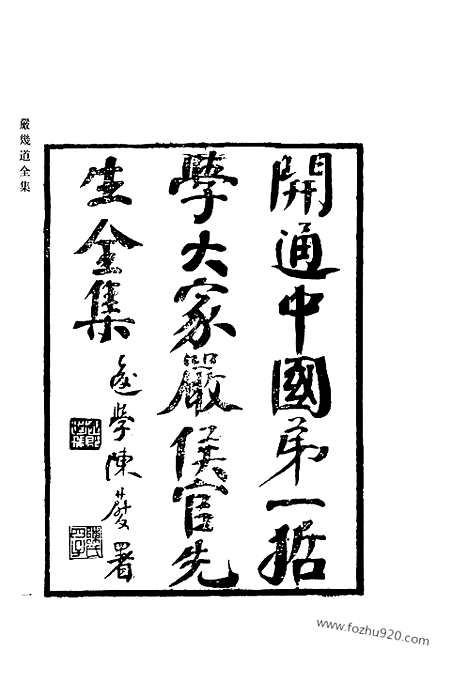 嚴幾道全集
開通中國第一哲
學大家嚴侯官先
生全集
後學陳葆署
一
www.fozhu920.com